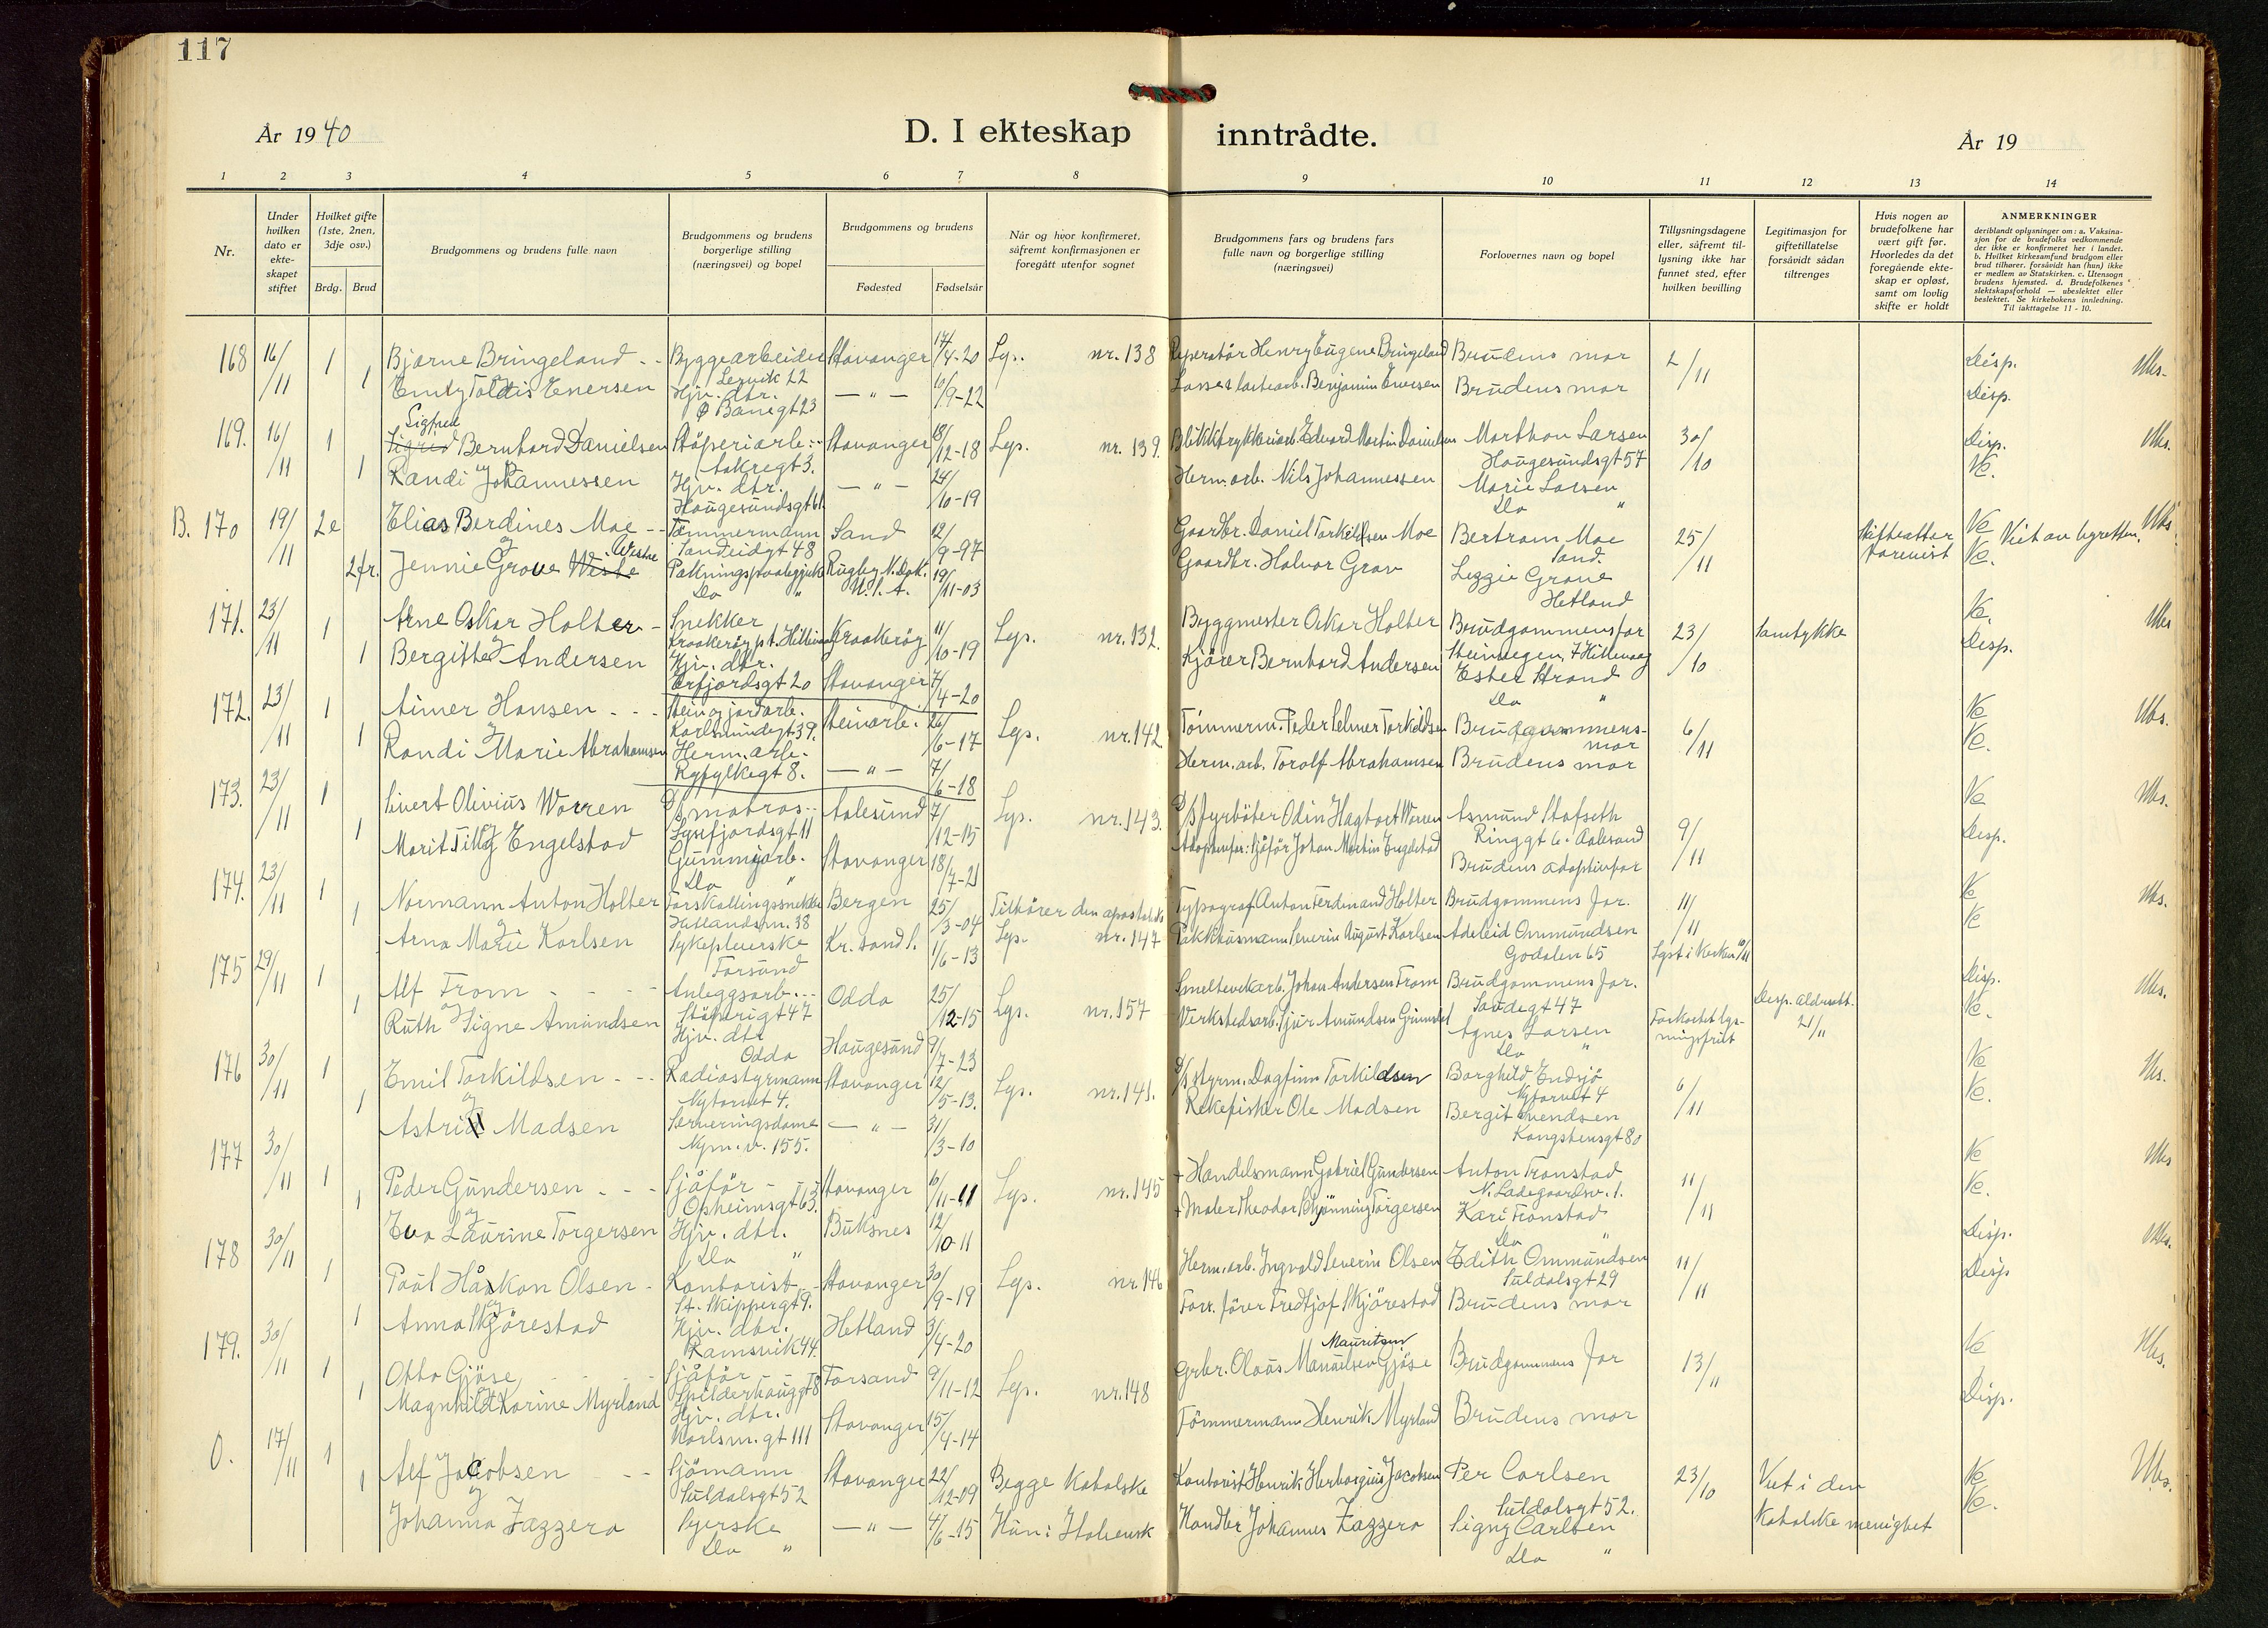 117
År 1940
D. I ekteskap inntrådte.
År 19
1 2 3 4 5 6 7 8 9 10 11 12 13 14
Nr.
Under hvilken dato er ekte-skapet stiftet
Hvilket gifte (1ste, 2nen, 3dje osv.)
Brdg. Brud
Brudgommens og brudens fulle navn
Brudgommens og brudens borgerlige stilling (næringsvei) og bopel
Brudgommens og brudens
Fødested Fødselsår
Når og hvor konfirmeret, såfremt konfirmasjonen er foregått utenfor sognet
Brudgommens fars og brudens fars fulle navn og borgerlige stilling (næringsvei)
Forlovernes navn og bopel
Tillysningsdagene eller, såfremt til-lysning ikke har funnet sted, efter hvilken bevilling
Legitimasjon for giftetillatelse forsåvidt sådan tiltrenges
Hvis nogen av brudefolkene har vært gift før. Hvorledes da det foregående ekte-skap er opløst, samt om lovlig skifte er holdt
ANMERKNINGER
deriblandt oplysninger om: a. Vaksina-sjon for de brudefolks vedkommende der ikke er konfirmeret her i landet. b. Hvilket kirkesamfund brudgom eller brud tilhører, forsåvidt han (hun) ikke er medlem av Statskirken. c. Utensogn brudens hjemsted. d. Brudefolkenes slektskapsforhold — ubeslektet eller beslektet. Se kirkebokens innledning. Til iakttagelse 11 - 10.
168 16/11 1 Bjarne Bringeland - - Byggearbeider Stavanger 14/4-20 Lys. nr. 138 Reperatör Henry Eugene Bringeland Brudens mor 2/11 Disp. Ubs.
Lervik 22
1 Emly Toldis Enersen Hjv. dtr. — " — 10/9-22 Benjamin Enersen Brudens mor Disp.
Ø Banegt 23
Sigfred
169. 16/11 1 Sigred Bernhard Danielsen Støperiarb. Stavanger 18/12-18 Lys. nr. 139. Blikktrykkeriarb. Edvard Martin Danielsen Marthon Larsen 30/10 Disp. Ubs.
og Aakregt 3. Haugesundsgt 57
1 Randi Johannessen Hjv. dtr. — " — 24/10-19 Herm. arb. Nils Johannessen Marie Larsen Ve.
Haugesundsgt 61 Do "
B. 170 19/11 2e Elias Berdines Moe - - Tömmermann Sand 12/9-97 Gaardbr. Daniel Torkildsen Moe Bertram Moe 25/11 Skifteattar Ve Viet av byretten. Ubs
og Westre Sandeidgt 48 Sand. forevist
2 fr. Jennie Grove Weste Rugby N. Dak. U.S.A. 19/11-03 Gaardbr. Halvor Grav Lizzie Grone Ve.
Do " Hetland
171. 23/11 1 Arne Oskar Holter - Snekker Kraakeröy 11/10-19 Lys. nr. 132. Byggmester Oskar Holter Brudgommens far 23/10 Samtykke Ve. Ubs
og Kraakeröy p.t. Hillevaag
1 Bergitte Andersen Hjv. dtr. Stavanger 7/4-20 Kjörer Bernhard Andersen Ester Strand Disp.
Erfjordsgt 20 Do "
172. 23/11 1 Aimer Hansen - - - Stein og jordarb. 26/6-17 Lys. nr. 142 Tömmerm. Peder Torkildsen Brudgommens mor 6/11 Ve Ubs.
og Karlsmindegt 39.
1 Randi Marie Abrahamsen Herm. arb. — " — 7/6-18 Herm. arb. Torolf Abrahamsen Brudens mor Ve.
Ryfylkegt 8.
173. 23/11 1 Sivert Olivius Worren D/s matros - - Aalesund 7/12-15 Lys. nr. 143. D/s fyrböter Odin Hagbart Worren Asmund Stafseth 9/11 Ve Ubs.
og Lysefjordsgt 11 Ringgt 6. Aalesund
1 Marit Tilly Engelstad Gummiarb. Stavanger 18/7-21 Adoptivfar: Sjåför Johan Martin Engelstad Brudens adoptivfar Disp.
Do "
174. 23/11 1 Normann Anton Holter Forskallingssnekker Bergen 25/3-04 Tilhörer den apostoliske Typograf Anton Ferdinand Holter Brudgommens far. 11/11 Ve Ubs.
og Jutlandsm. 38
1 Arna Marie Karlsen Sykepleierske Kr. sand S. 1/6-13 Lys. nr. 147 Pakkhusmann Severin August Karlsen Adeleid Ommundsen Lyst i kirken 10/11 Ve
Forsand Godalen 65
175 29/11 1 Alf Trom - - - - Anleggsarb. - - Odda 25/12-15 Lys. nr. 157 Smelteverkarb. Johan Andersen Trom Brudgommens far. Disp. aldersatt. 21/11 Disp. Ubs.
og Støperigt 47 Saudegt 47
1 Ruth Signe Amundsen Hjv. dtr Haugesund 9/7-23 Verkstedsarb. Sjur Amundsen Grimstad Agnes Larsen Forkortet lysningsfrist Ve.
Odda Do "
176 30/11 1 Emil Torkildsen - - - Radiostyrmann Stavanger 12/5-13. Lys. nr. 141. D/s styrm. Dagfinn Torkildsen Borghild Endsjö 6/11 Ve Ubs.
og Nytorvet 4. Nytorvet 4
1 Astrid Madsen Serveringsdame — " — 31/3-10 Rekefisker Ole Madsen Bergit Svendsen Ve.
Nym. v. 155. Kongstensgt 80
177 30/11 1 Peder Gundersen - - - Sjåför - - - Stavanger 10/11-11 Lys. nr. 145 + Handelsmann Gabriel Gundersen Anton Tronstad 11/11 Ve Ubs
og Opheimsgt 63. N. Ladegaardsv. 1.
1 Eva Laurine Torgersen Hjv. dtr. Buksnes 12/10-11 + Maler Theodor Schjönning Torgersen Kari Tronstad Ve.
Do " Do "
178 30/11 1 Paul Håkon Olsen - Kontorist - Stavanger 30/9-19 Lys. nr 146 Herm. arb. Ingvald Severin Olsen Edith Ommundsen 11/11 Disp. Ubs.
og St. Skippergt 9. Suldalsgt 29
1 Anna Skjörestad Hjv. dtr. Hetland 3/4-20 Forr. förer Fredtjof Skjörestad Brudens mor Disp
Ramsvik 44.
Mauritsen
179. 30/11 1 Otto Gjöse - - - Sjåför - - Forsand 9/11-12 Lys. nr. 148 Grbr. Olaus Manuelsen Gjöse Brudgommens far 13/11 Ve Ubs.
og Spilderhauggt 8
1 Magnhild Karine Myrland Hjv. dtr. Stavanger 15/4-14 Tömmermann Henrik Myrland Brudens mor Disp.
Karlsm. gt 111
O. 17/11 1 Alf Jacobsen - - Sjömann Stavanger 22/12-09 Begge Katolske Kontorist Henrik Herborgius Jacobsen Per Carlsen 23/10 Viet i den Ve Ubs.
og Suldalsgt 52 Suldalsgt 52.
1 Johanna Zazzera Syerske — " — 4/6-15 Hun: Italiensk Handler Johannes Zazzera Signy Carlsen Katolske menighet Ve.
Do " Do "